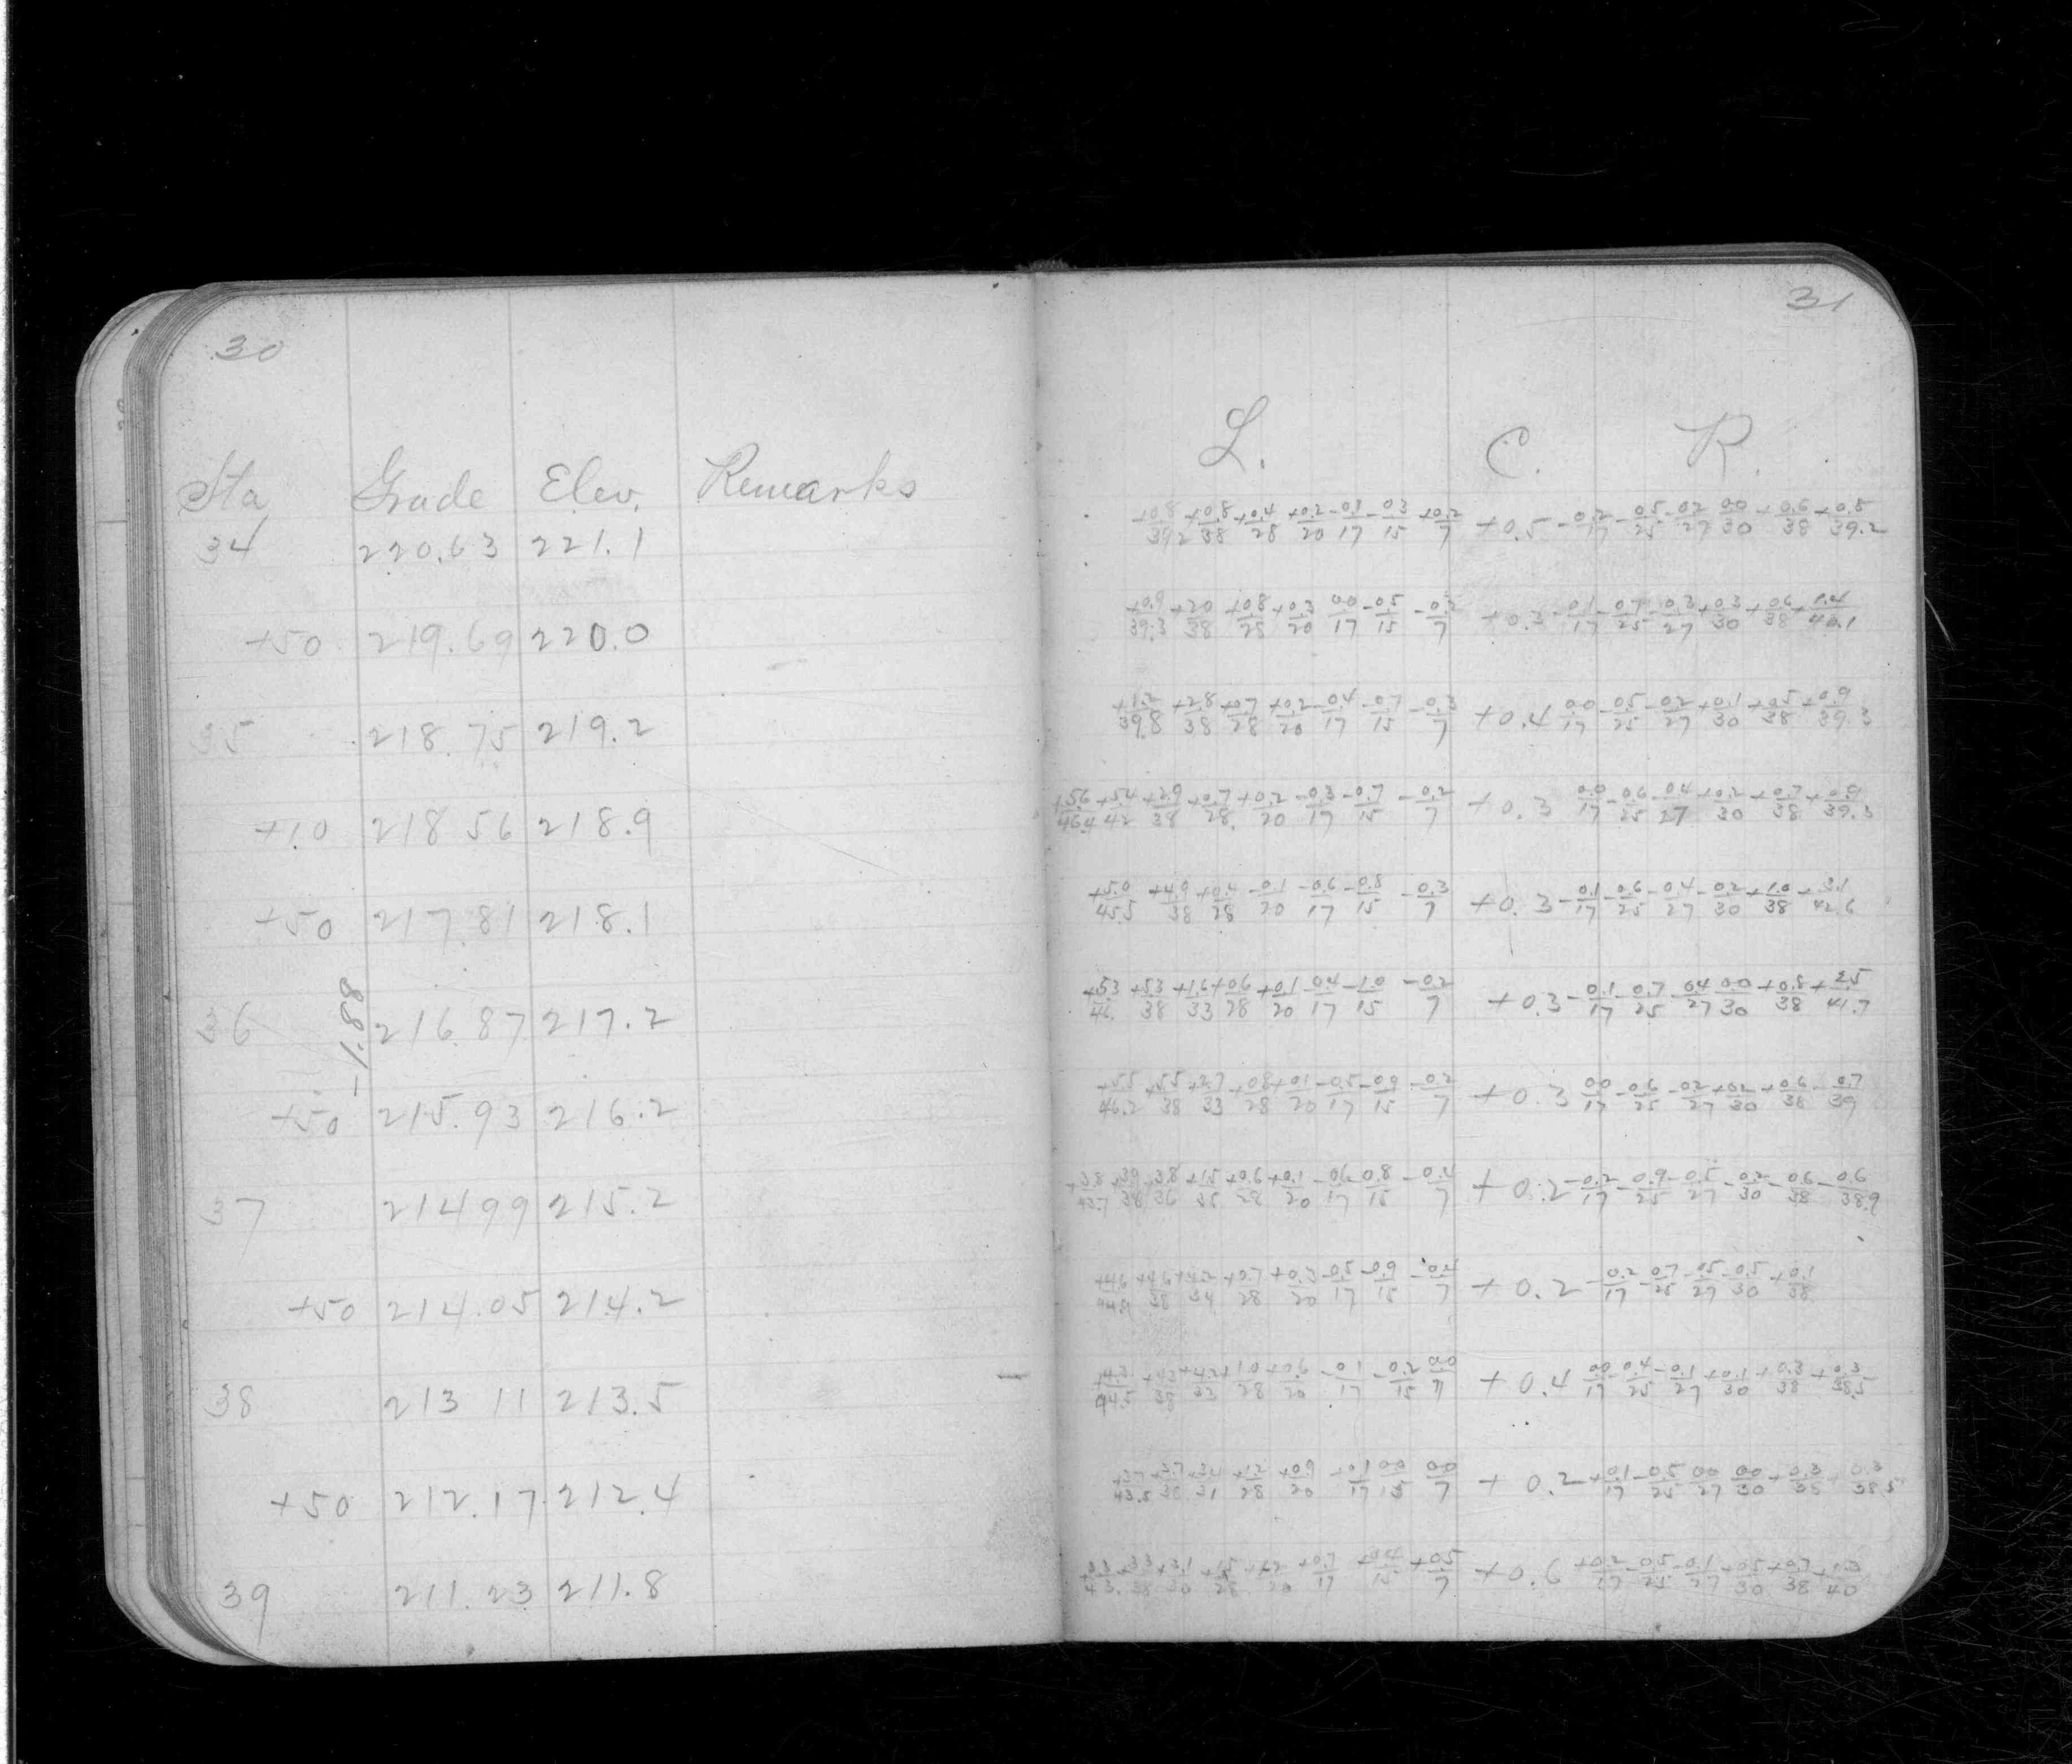 30
Sta Grade Elev. Remarks
34 220.63 221.1
+50 219.69 220.0
35 218.75 219.2
+10 218 56 218.9
+50 217.81 218.1
36 216.87 217.2
-1.88
+50 215.93 216.2
37 214 99 215.2
+50 214.05 214.2
38 213 11 213.5
+50 212.17 212.4
39 211.23 211.8
31
L. C. R.
+0.8/39.2 +0.8/38 +0.4/28 +0.2/20 -0.1/17 -0.3/15 +0.2/7 +0.5 -0.2/17 -0.5/25 -0.2/27 0.0/30 +0.6/38 +0.8/39.2
+0.9/39.3 +2.0/38 +0.8/28 +0.3/20 0.0/17 -0.5/15 -0.2/7 +0.3 -0.1/17 -0.7/25 -0.3/27 +0.3/30 +0.6/38 +1.4/40.1
+1.2/39.8 +2.8/38 +0.7/28 +0.2/20 -0.4/17 -0.7/15 -0.3/7 +0.4 0.0/17 -0.5/25 -0.2/27 +0.1/30 +0.5/38 +0.9/39.3
+5.6/46.4 +5.4/42 +2.9/38 +0.7/28 +0.2/20 -0.3/17 -0.7/15 -0.2/7 +0.3 0.0/17 -0.6/25 -0.4/27 +0.2/30 +0.7/38 +0.9/39.3
+5.0/45.5 +4.9/38 +0.4/28 -0.1/20 -0.6/17 -0.8/15 -0.3/7 +0.3 -0.1/17 -0.6/25 -0.4/27 -0.2/30 +1.0/38 +3.1/42.6
+5.3/46. +5.3/38 +1.6/33 +0.6/28 +0.1/20 -0.4/17 -1.0/15 -0.2/7 +0.3 -0.1/17 -0.7/25 -0.4/27 0.0/30 +0.8/38 +2.5/41.7
+5.5/46.2 +5.5/38 +2.7/33 +0.8/28 +0.1/20 -0.5/17 -0.9/15 -0.2/7 +0.3 0.0/17 -0.6/25 -0.2/27 +0.2/30 +0.6/38 -0.7/39
+3.8/43.7 +3.9/38 +3.8/36 +1.5/35 +0.6/28 +0.1/20 -0.6/17 -0.8/15 -0.4/7 +0.2 -0.2/17 -0.9/25 -0.5/27 -0.2/30 -0.6/38 -0.6/38.9
+4.6/44.9 +4.6/38 +4.2/34 +0.7/28 +0.3/20 -0.5/17 -0.9/15 -0.4/7 +0.2 -0.2/17 -0.7/25 -0.5/27 -0.5/30 +0.1/38
+4.3/44.5 +4.3/38 +4.2/33 +1.0/28 +0.6/20 -0.1/17 -0.2/15 0.0/7 +0.4 0.0/17 -0.4/25 -0.1/27 +0.1/30 +0.3/38 +0.3/38.5
+3.7/43.5 +3.7/38 +3.4/31 +1.2/28 +0.9/20 +0.1/17 0.0/15 0.0/7 +0.2 +0.1/17 -0.5/25 0.0/27 0.0/30 +0.3/38 +0.3/38.5
+3.3/43. +3.3/38 +3.1/30 +1.5/28 +1.2/20 +0.7/17 +0.4/15 +0.5/7 +0.6 +0.2/17 -0.5/25 -0.1/27 +0.5/30 +0.7/38 +1.3/40